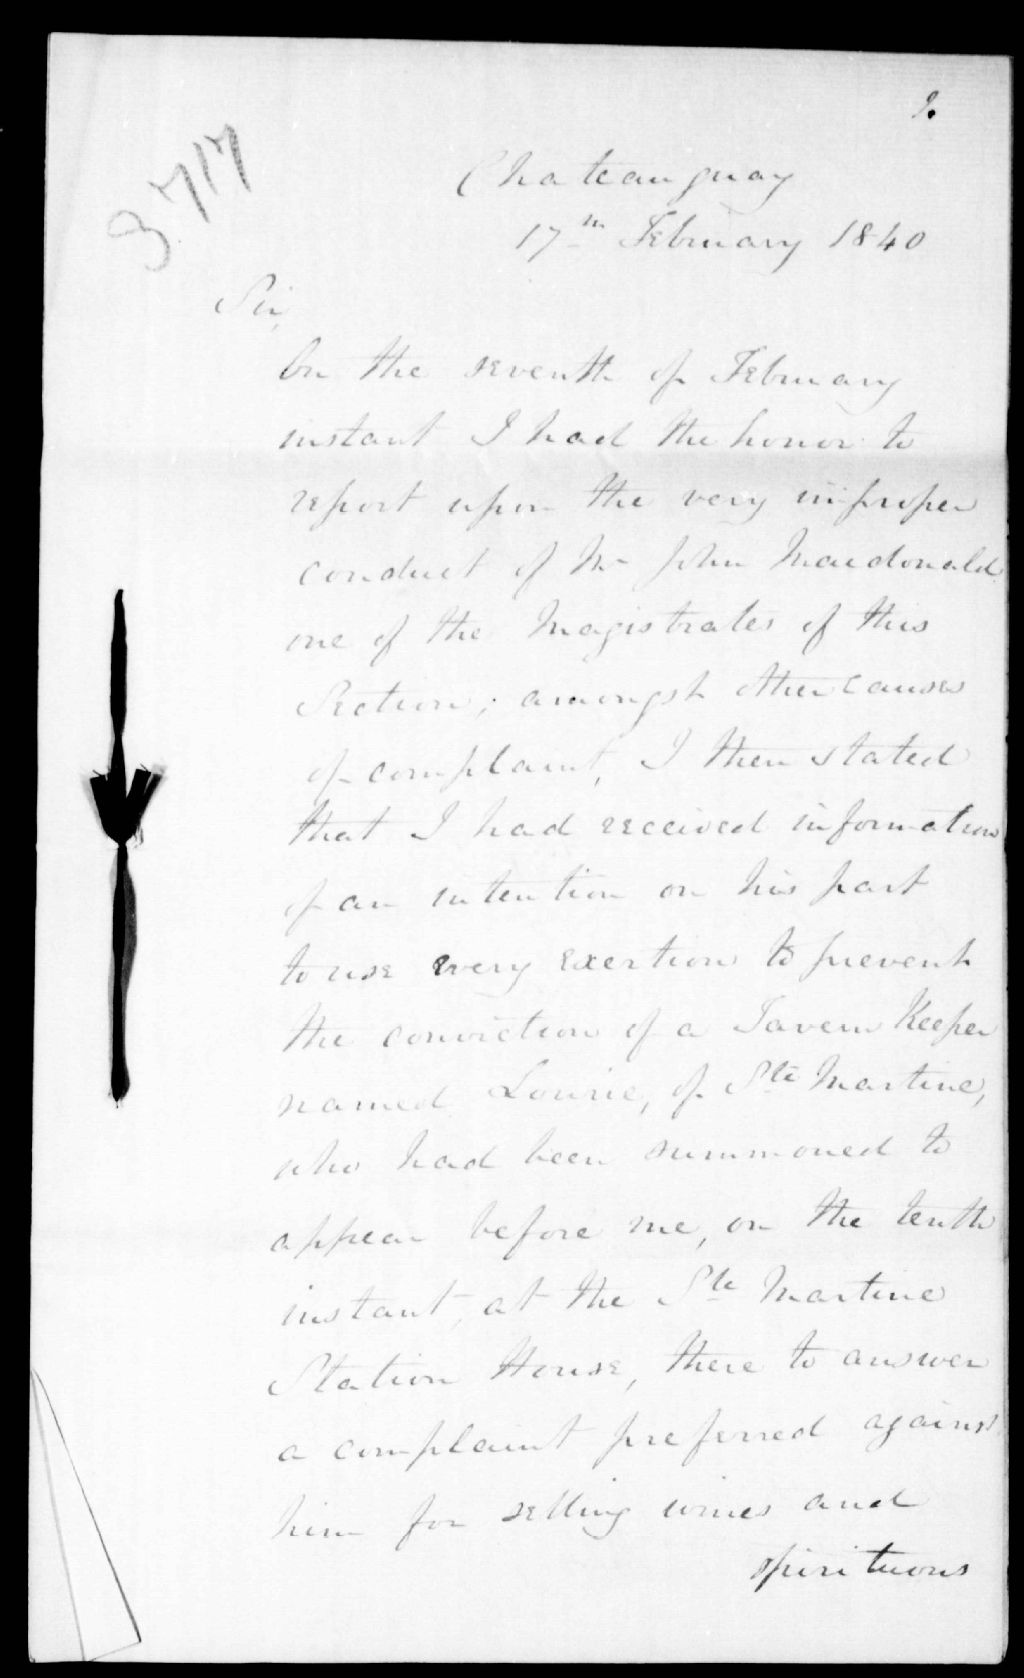 3717
Chateauguay
17th February 1840
Sir,
On the seventh of February
instant I had the honor to
report upon the very improper
conduct of Mr John Macdonald
one of the Magistrates of this
Section; amongst other causes
of complaint, I then stated
that I had received information
of an intention on his part
to use every exertion to prevent
the conviction of a Tavern Keeper
named Lowrie, of Ste Martine,
who had been summoned to
appear before me, on the tenth
instant, at the Ste Martine
Station House, there to answer
a complaint preferred against
him for selling wines and
spirituous